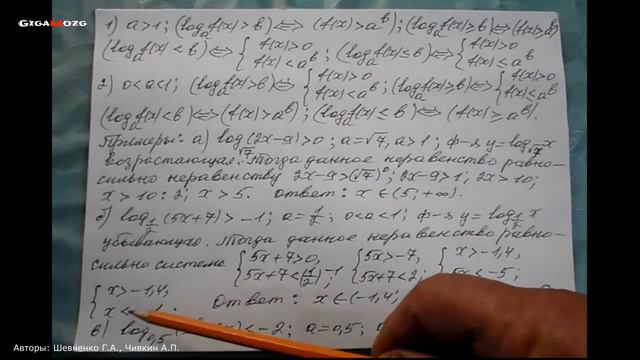 GIGAMOZG
1) a>1; (logₐf(x)>b)⇔(f(x)>aᵇ); (logₐf(x)≥b)⇔(f(x)≥aᵇ)
(logₐf(x)<b)⇔{f(x)>0 f(x)<aᵇ; (logₐf(x)≤b)⇔{f(x)>0 f(x)≤aᵇ
2) 0<a<1; (logₐf(x)>b)⇔{f(x)>0 f(x)<aᵇ; (logₐf(x)≥b)⇔{f(x)>0 f(x)≤aᵇ
(logₐf(x)<b)⇔(f(x)>aᵇ); (logₐf(x)≤b)⇔(f(x)≥aᵇ).
Примеры: а) log_√7(2x-9)>0; a=√7, a>1; ф-я y=log_√7 x
возрастающая. Тогда данное неравенство равно-
сильно неравенству 2x-9>(√7)⁰; 2x-9>1; 2x>10;
x>10:2; x>5. Ответ: x∈(5;+∞).
б) log_1/2(5x+7)>-1; a=1/2; 0<a<1; ф-я y=log_1/2 x
убывающая. Тогда данное неравенство равно-
сильно системе {5x+7>0, 5x+7<(1/2)⁻¹ {5x>-7, 5x+7<2; {x>-1,4, 5x<-5;
{x>-1,4, x< Ответ: x∈(-1,4;
в) log_0,5 <-2; a=0,5;
Авторы: Шевченко Г.А., Чивкин А.П.